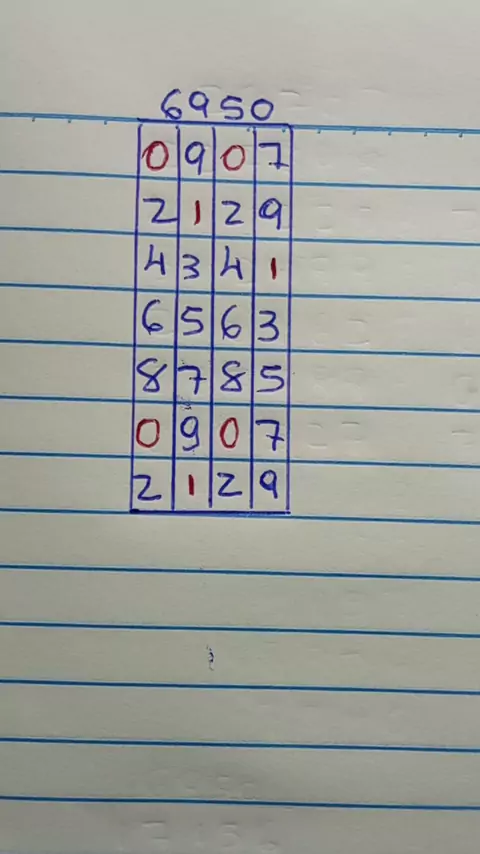 6950
0 9 0 7
2 1 2 9
4 3 4 1
6 5 6 3
8 7 8 5
0 9 0 7
2 1 2 9